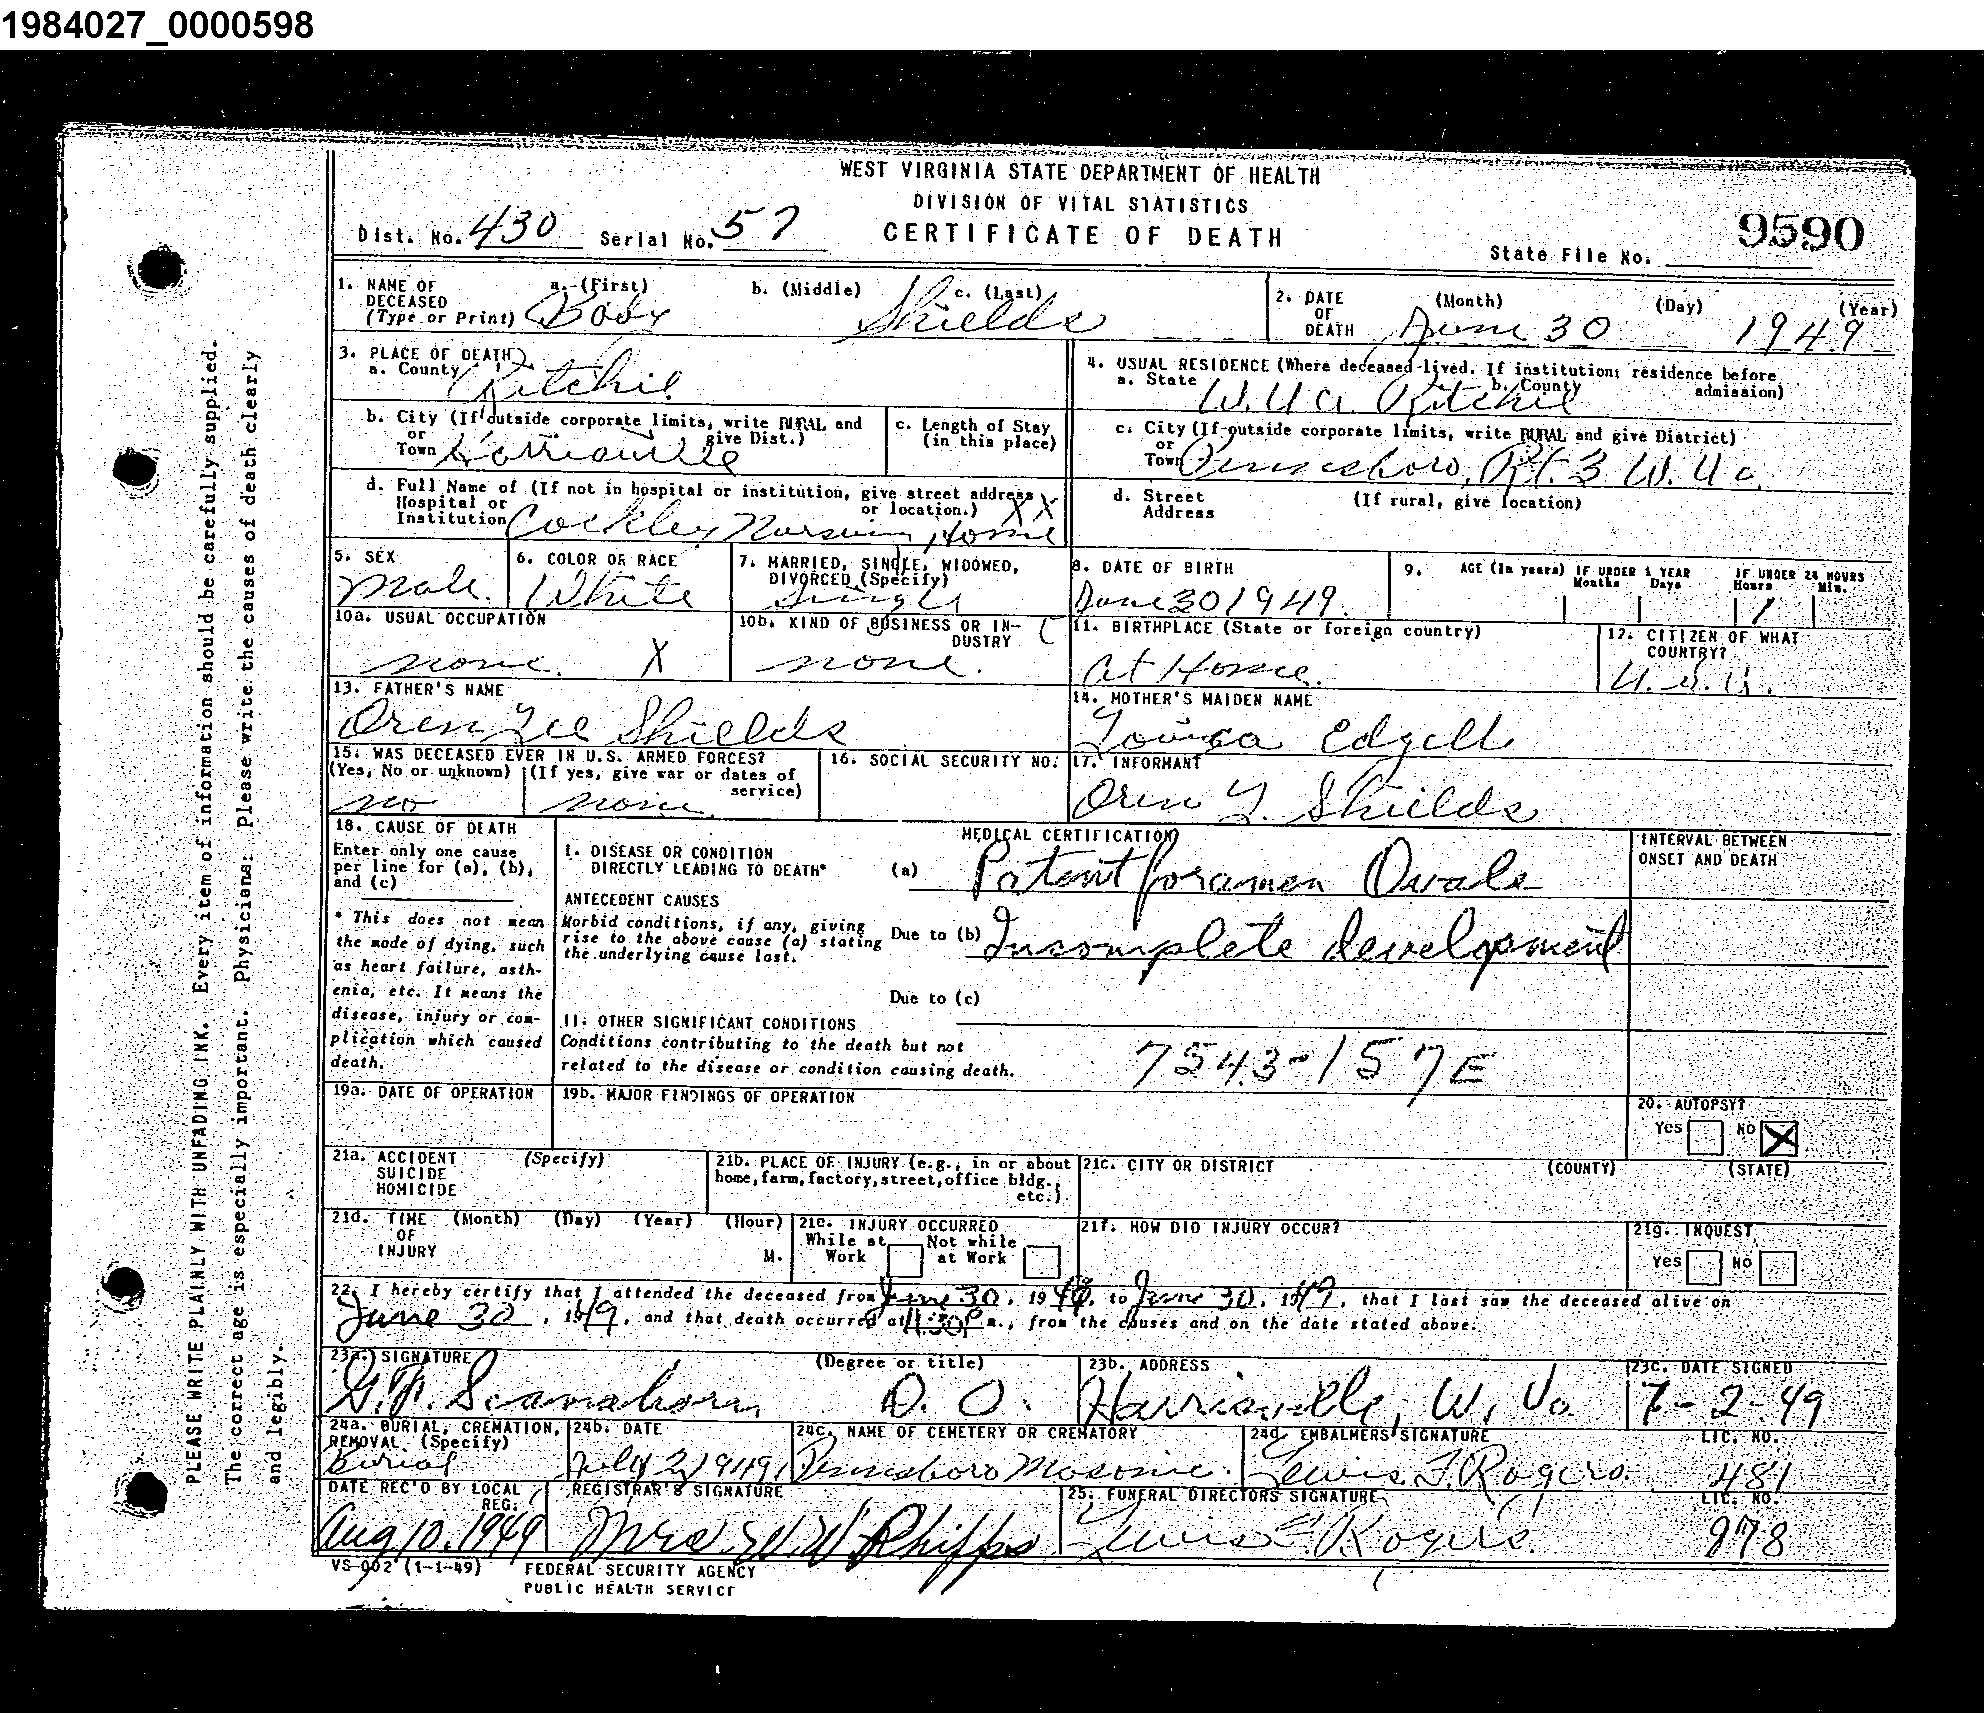 1984027_0000598
WEST VIRGINIA STATE DEPARTMENT OF HEALTH
DIVISION OF VITAL STATISTICS
Dist. No. 430 Serial No. 57 CERTIFICATE OF DEATH 9590
State File No.
1. NAME OF DECEASED (Type or Print) a. (First) Baby b. (Middle) c. (Last) Shields
2. DATE OF DEATH (Month) (Day) (Year) June 30 1949
3. PLACE OF DEATH
a. County Ritchie
4. USUAL RESIDENCE (Where deceased lived. If institution: residence before admission)
a. State W. Va. b. County Ritchie
b. City (If outside corporate limits, write RURAL and give Dist.) or Town Harrisville
c. Length of Stay (in this place)
c. City (If outside corporate limits, write RURAL and give District) or Town Pennsboro, Rt. 3 W. Va.
d. Full Name of (If not in hospital or institution, give street address or location.) Hospital or Institution Nursing Home XX
d. Street Address (If rural, give location)
5. SEX Male.
6. COLOR OR RACE White
7. MARRIED, SINGLE, WIDOWED, DIVORCED (Specify) Single
8. DATE OF BIRTH June 30 1949.
9. AGE (In years) IF UNDER 1 YEAR Months Days IF UNDER 24 HOURS Hours 1 Min.
10a. USUAL OCCUPATION none. X
10b. KIND OF BUSINESS OR INDUSTRY none.
11. BIRTHPLACE (State or foreign country) at Home.
12. CITIZEN OF WHAT COUNTRY? U.S.A.
13. FATHER'S NAME Oren Lee Shields
14. MOTHER'S MAIDEN NAME Louisa Edgell
15. WAS DECEASED EVER IN U.S. ARMED FORCES? (Yes, No or unknown) no (If yes, give war or dates of service) none
16. SOCIAL SECURITY NO.
17. INFORMANT Oren L. Shields
18. CAUSE OF DEATH
Enter only one cause per line for (a), (b), and (c)
* This does not mean the mode of dying, such as heart failure, asthenia, etc. It means the disease, injury or complication which caused death.
MEDICAL CERTIFICATION
INTERVAL BETWEEN ONSET AND DEATH
I. DISEASE OR CONDITION DIRECTLY LEADING TO DEATH* (a) Patent foramen Ovale
ANTECEDENT CAUSES
Morbid conditions, if any, giving rise to the above cause (a) stating the underlying cause last.
Due to (b) Incomplete development
Due to (c)
II. OTHER SIGNIFICANT CONDITIONS
Conditions contributing to the death but not related to the disease or condition causing death.
7543-157E
19a. DATE OF OPERATION
19b. MAJOR FINDINGS OF OPERATION
20. AUTOPSY? Yes No X
21a. ACCIDENT SUICIDE HOMICIDE (Specify)
21b. PLACE OF INJURY (e.g., in or about home, farm, factory, street, office bldg., etc.)
21c. CITY OR DISTRICT (COUNTY) (STATE)
21d. TIME OF INJURY (Month) (Day) (Year) (Hour) M.
21e. INJURY OCCURRED While at Work Not while at Work
21f. HOW DID INJURY OCCUR?
21g. INQUEST Yes No
22. I hereby certify that I attended the deceased from June 30, 1949, to June 30, 1949, that I last saw the deceased alive on
June 30, 1949, and that death occurred at 11:30 P m., from the causes and on the date stated above.
23a. SIGNATURE (Degree or title) D. O.
23b. ADDRESS Harrisville, W. Va
23c. DATE SIGNED 7-2-49
24a. BURIAL, CREMATION, REMOVAL (Specify) Burial
24b. DATE July 2, 1949
24c. NAME OF CEMETERY OR CREMATORY Pennsboro Masonic.
24d. EMBALMERS SIGNATURE Lewis F. Rogers. LIC. NO. 481
DATE REC'D BY LOCAL REG. Aug 10, 1949
REGISTRAR'S SIGNATURE Mrs. W. W. Phipps
25. FUNERAL DIRECTORS SIGNATURE Lewis F. Rogers. LIC. NO. 878
VS-002 (1-1-49) FEDERAL SECURITY AGENCY
PUBLIC HEALTH SERVICE
PLEASE WRITE PLAINLY WITH UNFADING INK. Every item of information should be carefully supplied.
The correct age is especially important. Physicians: Please write the causes of death clearly
and legibly.